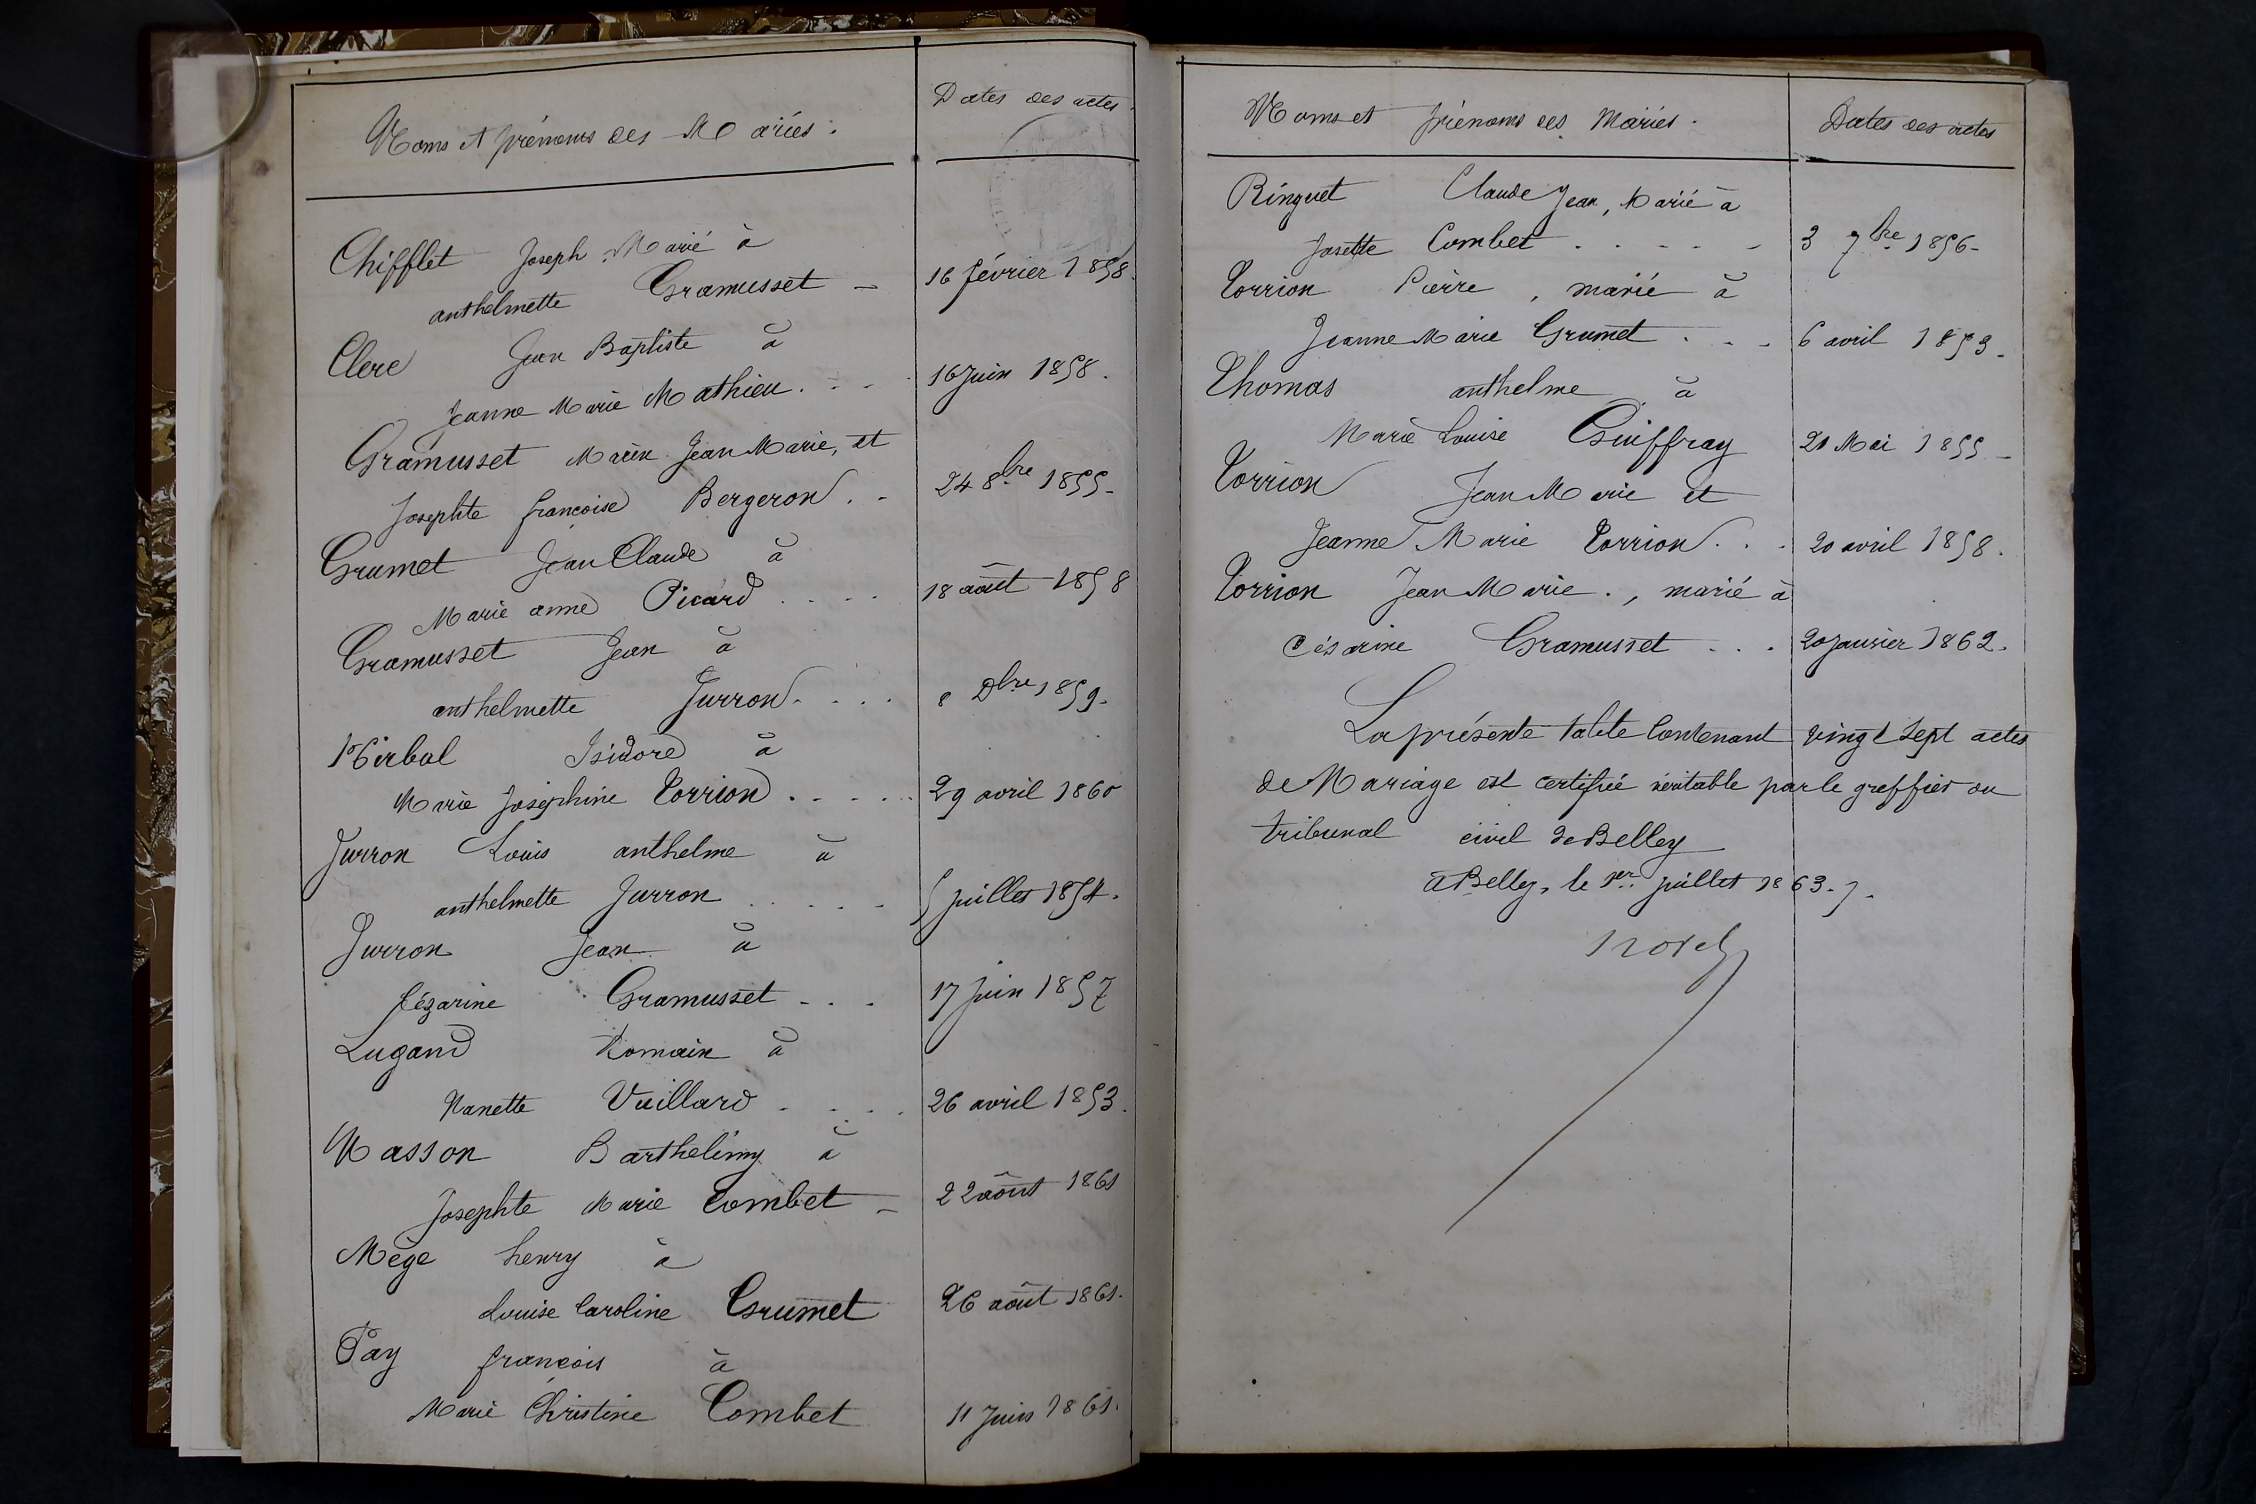 Noms et prénoms des Mariés.
Dates des actes.
Chifflet Joseph Marié à
anthelmette Gramusset - 16 février 1858.
Clerc Jean Baptiste à
Jeanne Marie Mathieu . . . 16 Juin 1858.
Gramusset Marin Jean Marie, et
Josephte françoise Bergeron . - 24 8bre 1855-
Grumet Jean Claude à
Marie anne Picard . . . . 18 août 1858
Gramusset Jean à
anthelmette Jurron . . . . 8 Dbre 1859-
Hirbal Isidore à
Marie Joséphine Torrion . . . . . 29 avril 1860
Jurron Louis anthelme à
anthelmette Jurron . . . . . 5 juillet 1854.
Jurron Jean à
Cézarine Gramusset - . . 17 juin 1857
Lugand Romain à
Nanette Vuillard . . . . 26 avril 1853.
Masson Barthelémy à
Josephte Marie Combet - 22 août 1861
Mège henry à
Louise Caroline Grumet 26 août 1861.
Pay françois à
Marie Christine Combet 11 Juin 1861.
Noms et prénoms des Mariés.
Dates des actes
Ringuet Claude Jean, Marié à
Josette Combet . . - - - 3 7bre 1856-
Torrion Pierre, marié à
Jeanne Marie Grumet . . - 6 avril 1853.
Thomas anthelme à
Marie Louise Guiffray 21 Mai 1855 -
Torrion Jean Marie et
Jeanne Marie Torrion . . . 20 avril 1858.
Torrion Jean Marie., marié à
Césarine Gramusset . . . 20 Janvier 1862.
La présente table Contenant vingt sept actes
de Mariage est certifiée véritable par le greffier au
tribunal civil de Belley
à Belley, le 1er juillet 1863.